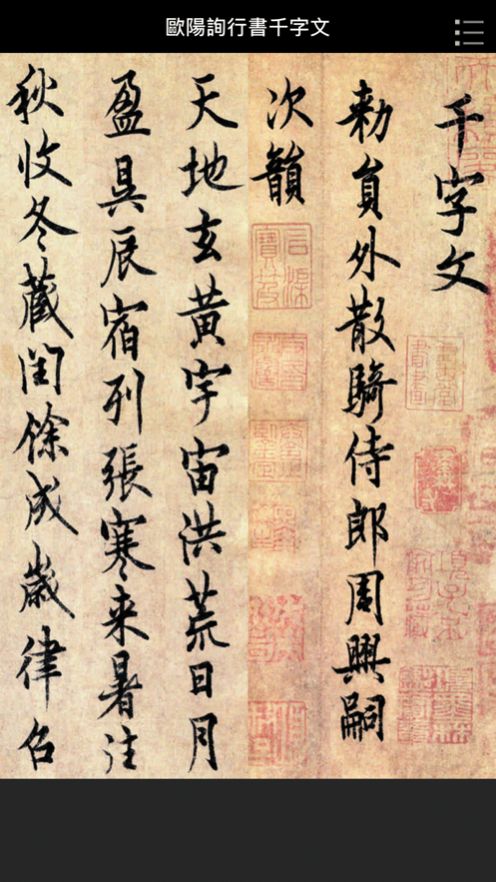 歐陽詢行書千字文
千字文
勅員外散騎侍郎周興嗣
次韻
天地玄黄宇宙洪荒日月
盈昃辰宿列張寒来暑往
秋收冬藏閏餘成歲律召